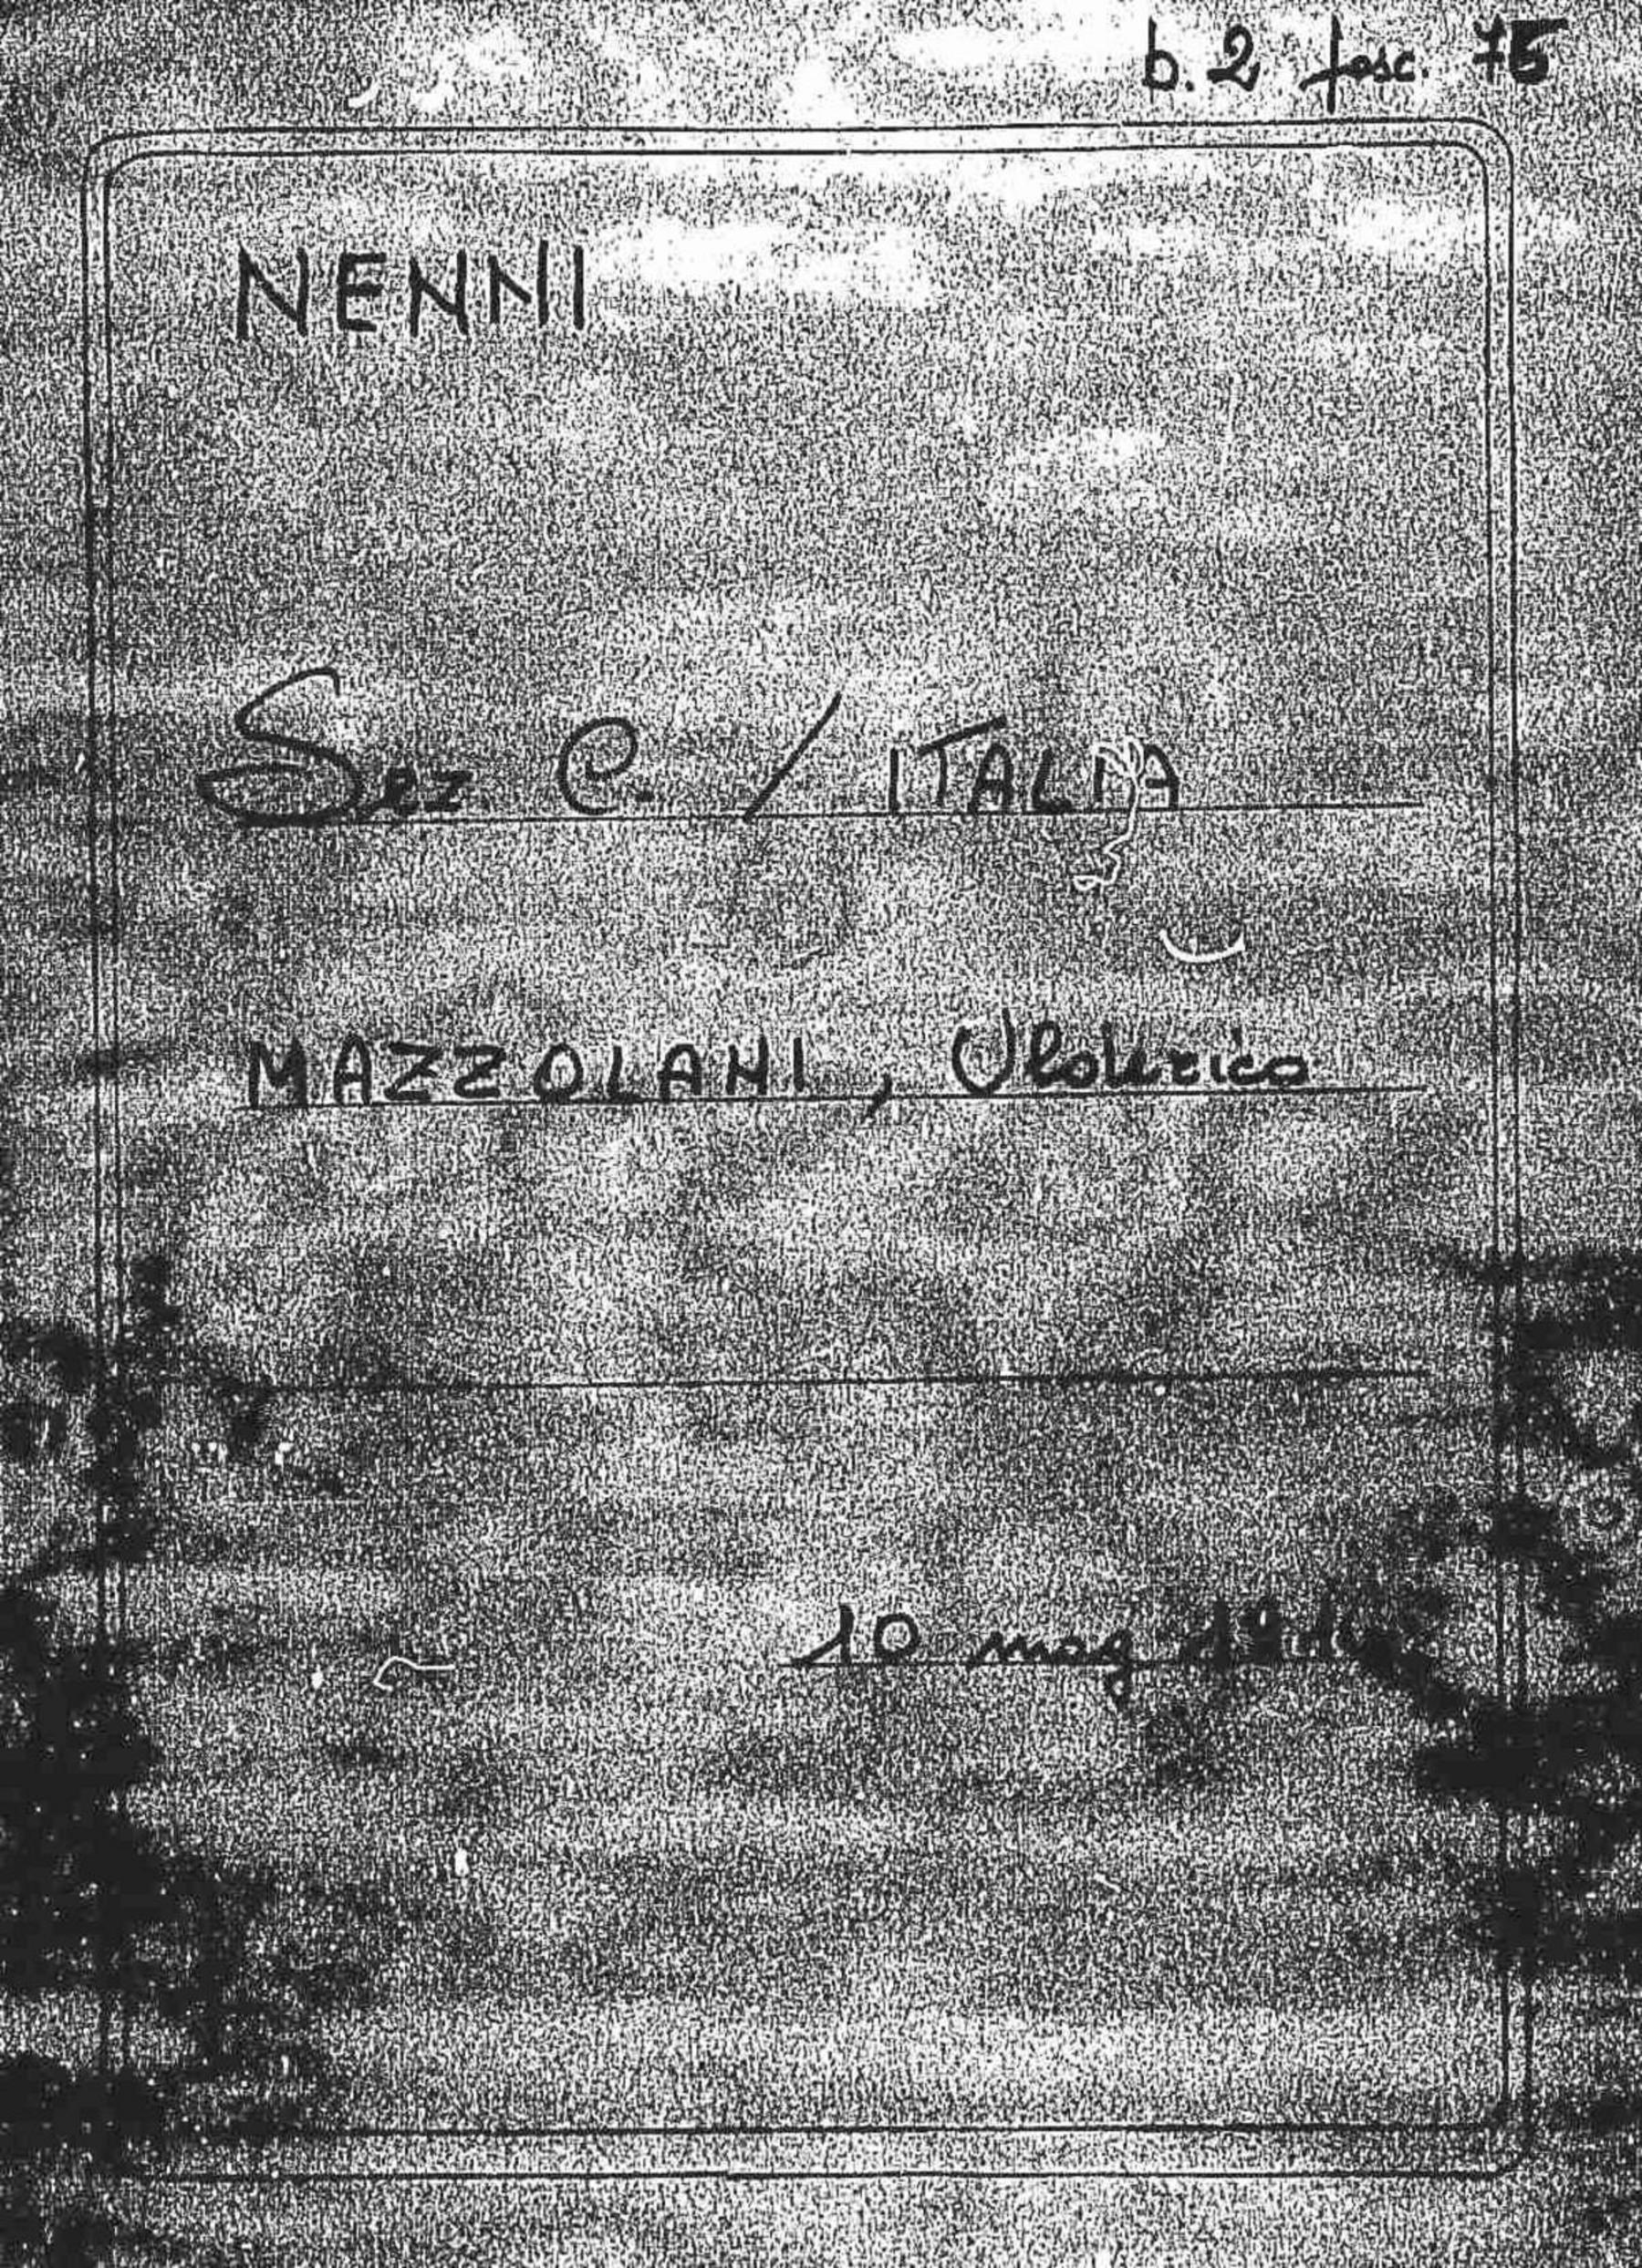 b. 2 fasc. 75
NENNI
Sez C. / ITALIA
MAZZOLANI, Ulderico
10 mag